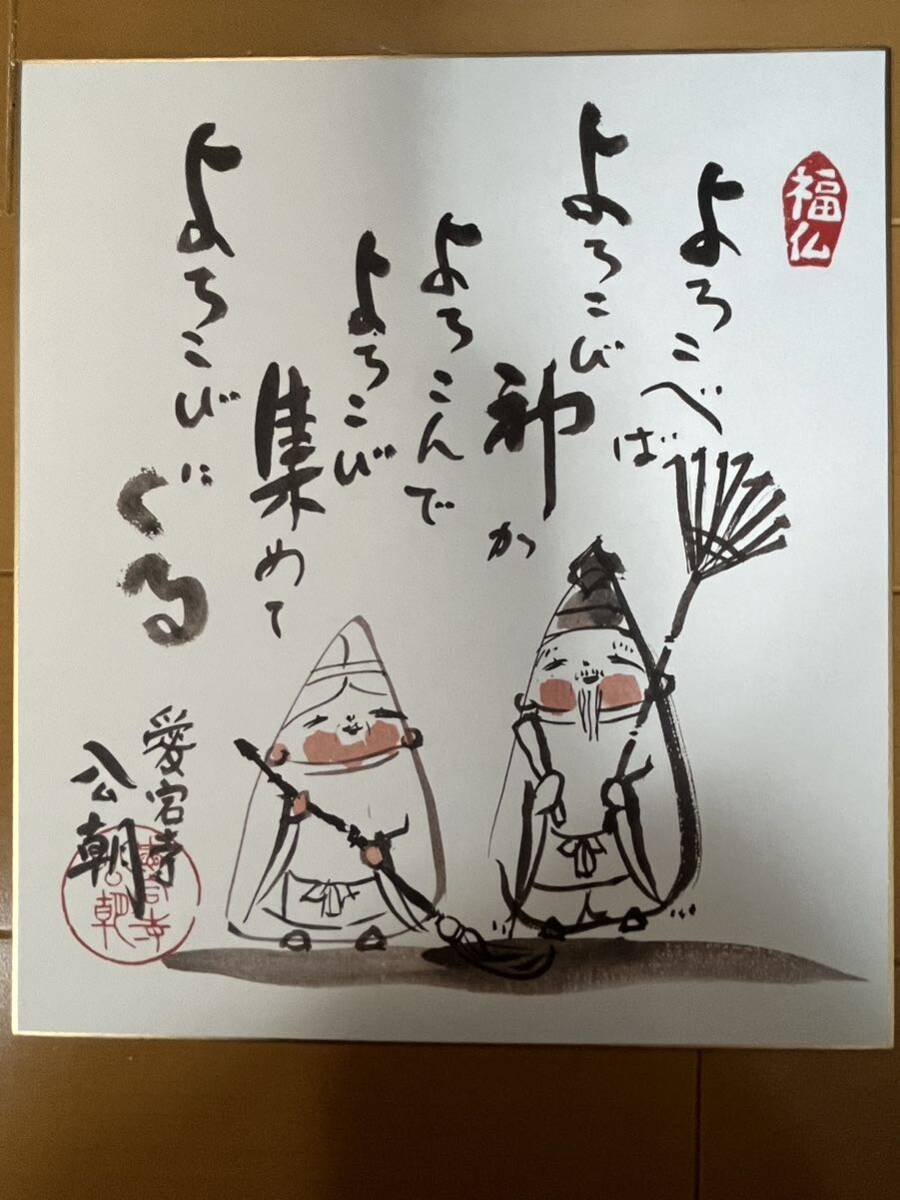 福仏
よろこべば
よろこび
神が
よろこんで
よろこび
集めて
よろこびにくる
愛宕寺
公朝